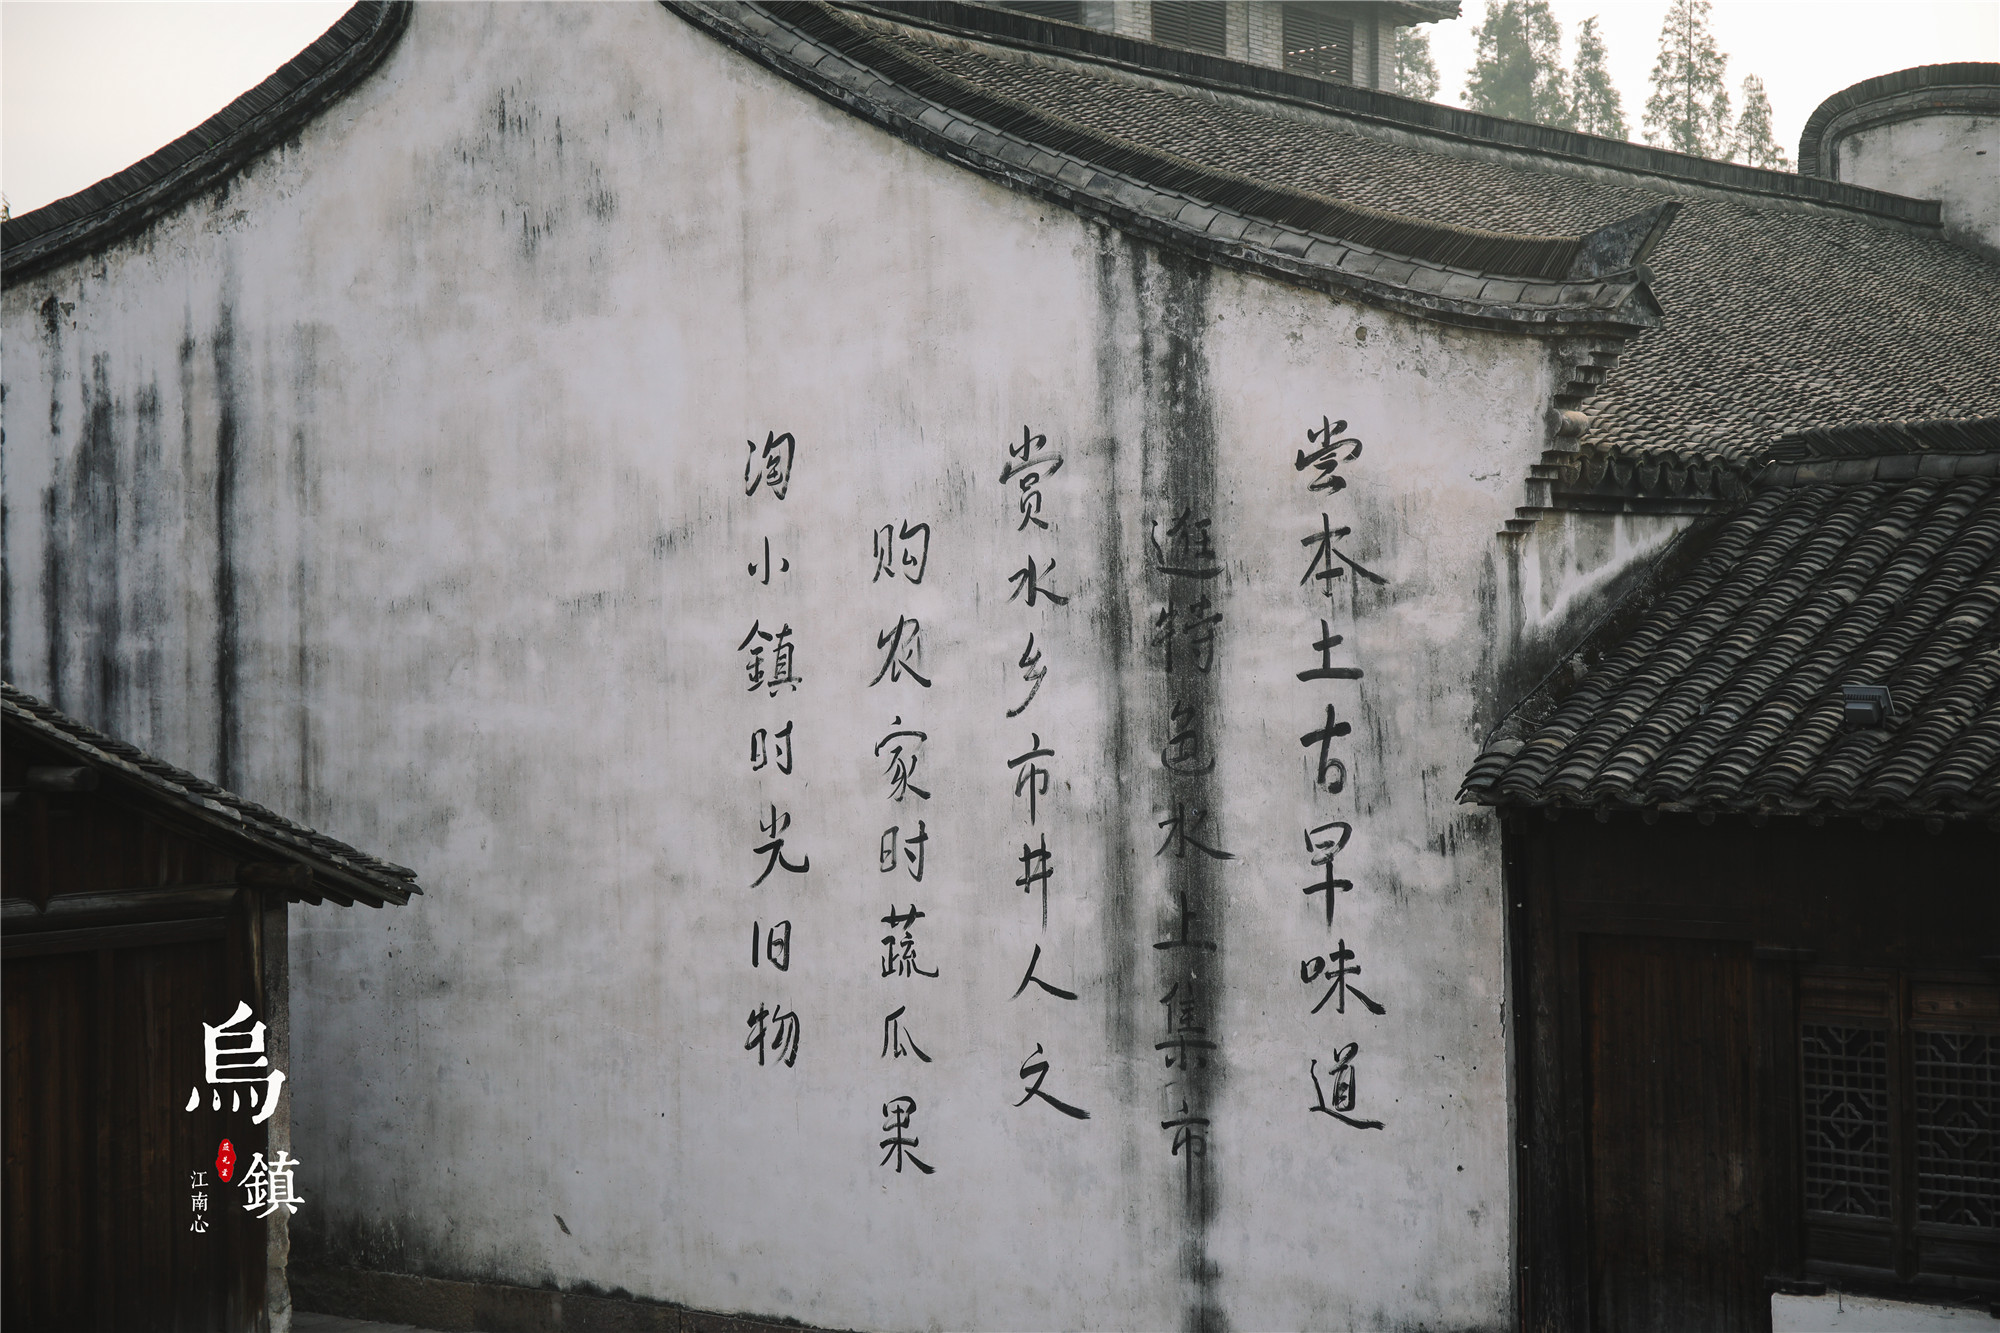 尝本土古早味道
逛特色水上集市
赏水乡市井人文
购农家时蔬瓜果
淘小鎮时光旧物
烏鎮
江南心